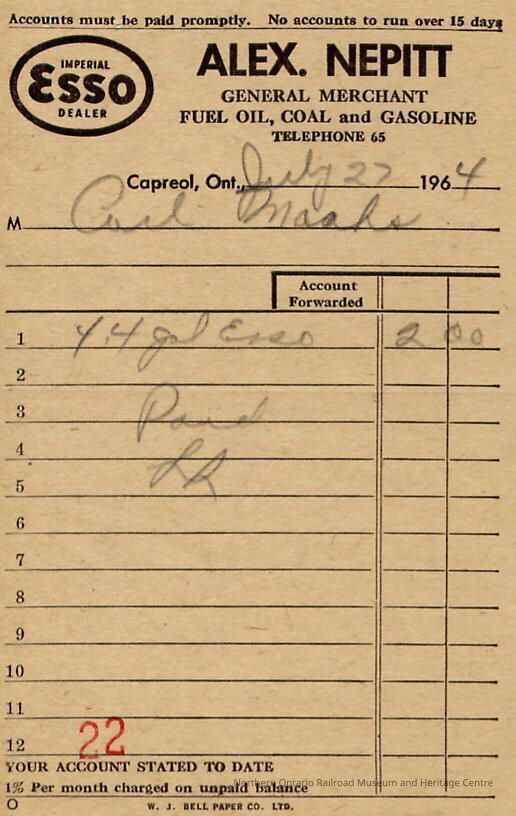 Accounts must be paid promptly. No accounts to run over 15 days
IMPERIAL
Esso
DEALER
ALEX. NEPITT
GENERAL MERCHANT
FUEL OIL, COAL and GASOLINE
TELEPHONE 65
Capreol, Ont., July 27 1964
M Carl Maahs
Account
Forwarded
1 4.4 gal Esso 2 00
2
3 Paid
4
5
6
7
8
9
10
11
12 22
YOUR ACCOUNT STATED TO DATE
1% Per month charged on unpaid balance
Northern Ontario Railroad Museum and Heritage Centre
O W. J. BELL PAPER CO. LTD.